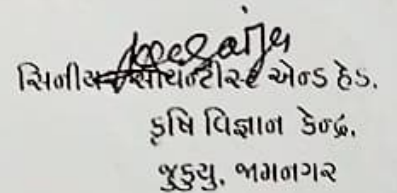 સિનીયર સાયન્ટીસ્ટ એન્ડ હેડ.
કૃષિ વિજ્ઞાન કેન્દ્ર,
જુકુયુ, જામનગર